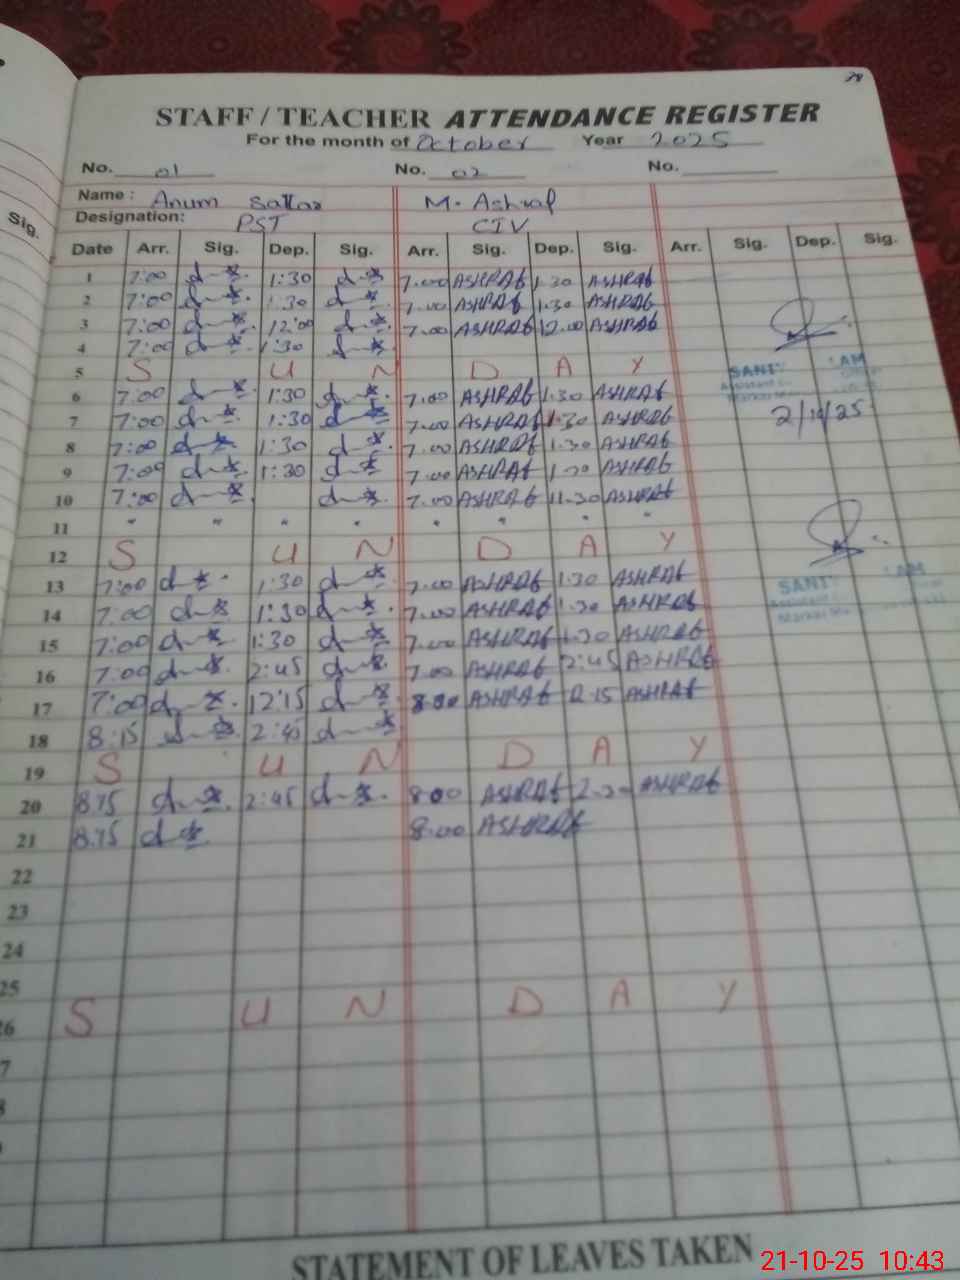 STAFF / TEACHER ATTENDANCE REGISTER
For the month of October Year 2025
No. 01 No. 02 No.
Name : Anum Sattar M. Ashraf
Designation: PST CIV
Sig. Date Arr. Sig. Dep. Sig. Arr. Sig. Dep. Sig. Arr. Sig. Dep. Sig.
1 7:00 1:30 7.00 ASHRAf 1.30 ASHRAf
2 7:00 1:30 7.00 ASHRAf 1.30 ASHRAf
3 7:00 12:00 7.00 ASHRAf 12.00 ASHRAf
4 7:00 1:30
5 S U N D A Y
6 7:00 1:30 7.00 ASHRAf 1.30 ASHRAf
7 7:00 1:30 7.00 ASHRAf 1.30 ASHRAf
2/10/25
8 7:00 1:30 7.00 ASHRAf 1.30 ASHRAf
9 7:00 1:30 7.00 ASHRAf 1.30 ASHRAf
10 7:00 7.00 ASHRAf 11.30 ASHRAf
11 " " " " " " " "
12 S U N D A Y
13 7:00 1:30 7.00 ASHRAf 1.30 ASHRAf
14 7:00 1:30 7.00 ASHRAf 1.30 ASHRAf
15 7:00 1:30 7.00 ASHRAf 1.30 ASHRAf
16 7:00 2:45 7.00 ASHRAf 2:45 ASHRAf
17 7:00 12:15 8.00 ASHRAf 12.15 ASHRAf
18 8:15 2:45
19 S U N D A Y
20 8:15 2:45 8.00 ASHRAf 2.30 ASHRAf
21 8:15 8.00 ASHRAf
22
23
24
25
26 S U N D A Y
7
8
STATEMENT OF LEAVES TAKEN
21-10-25 10:43